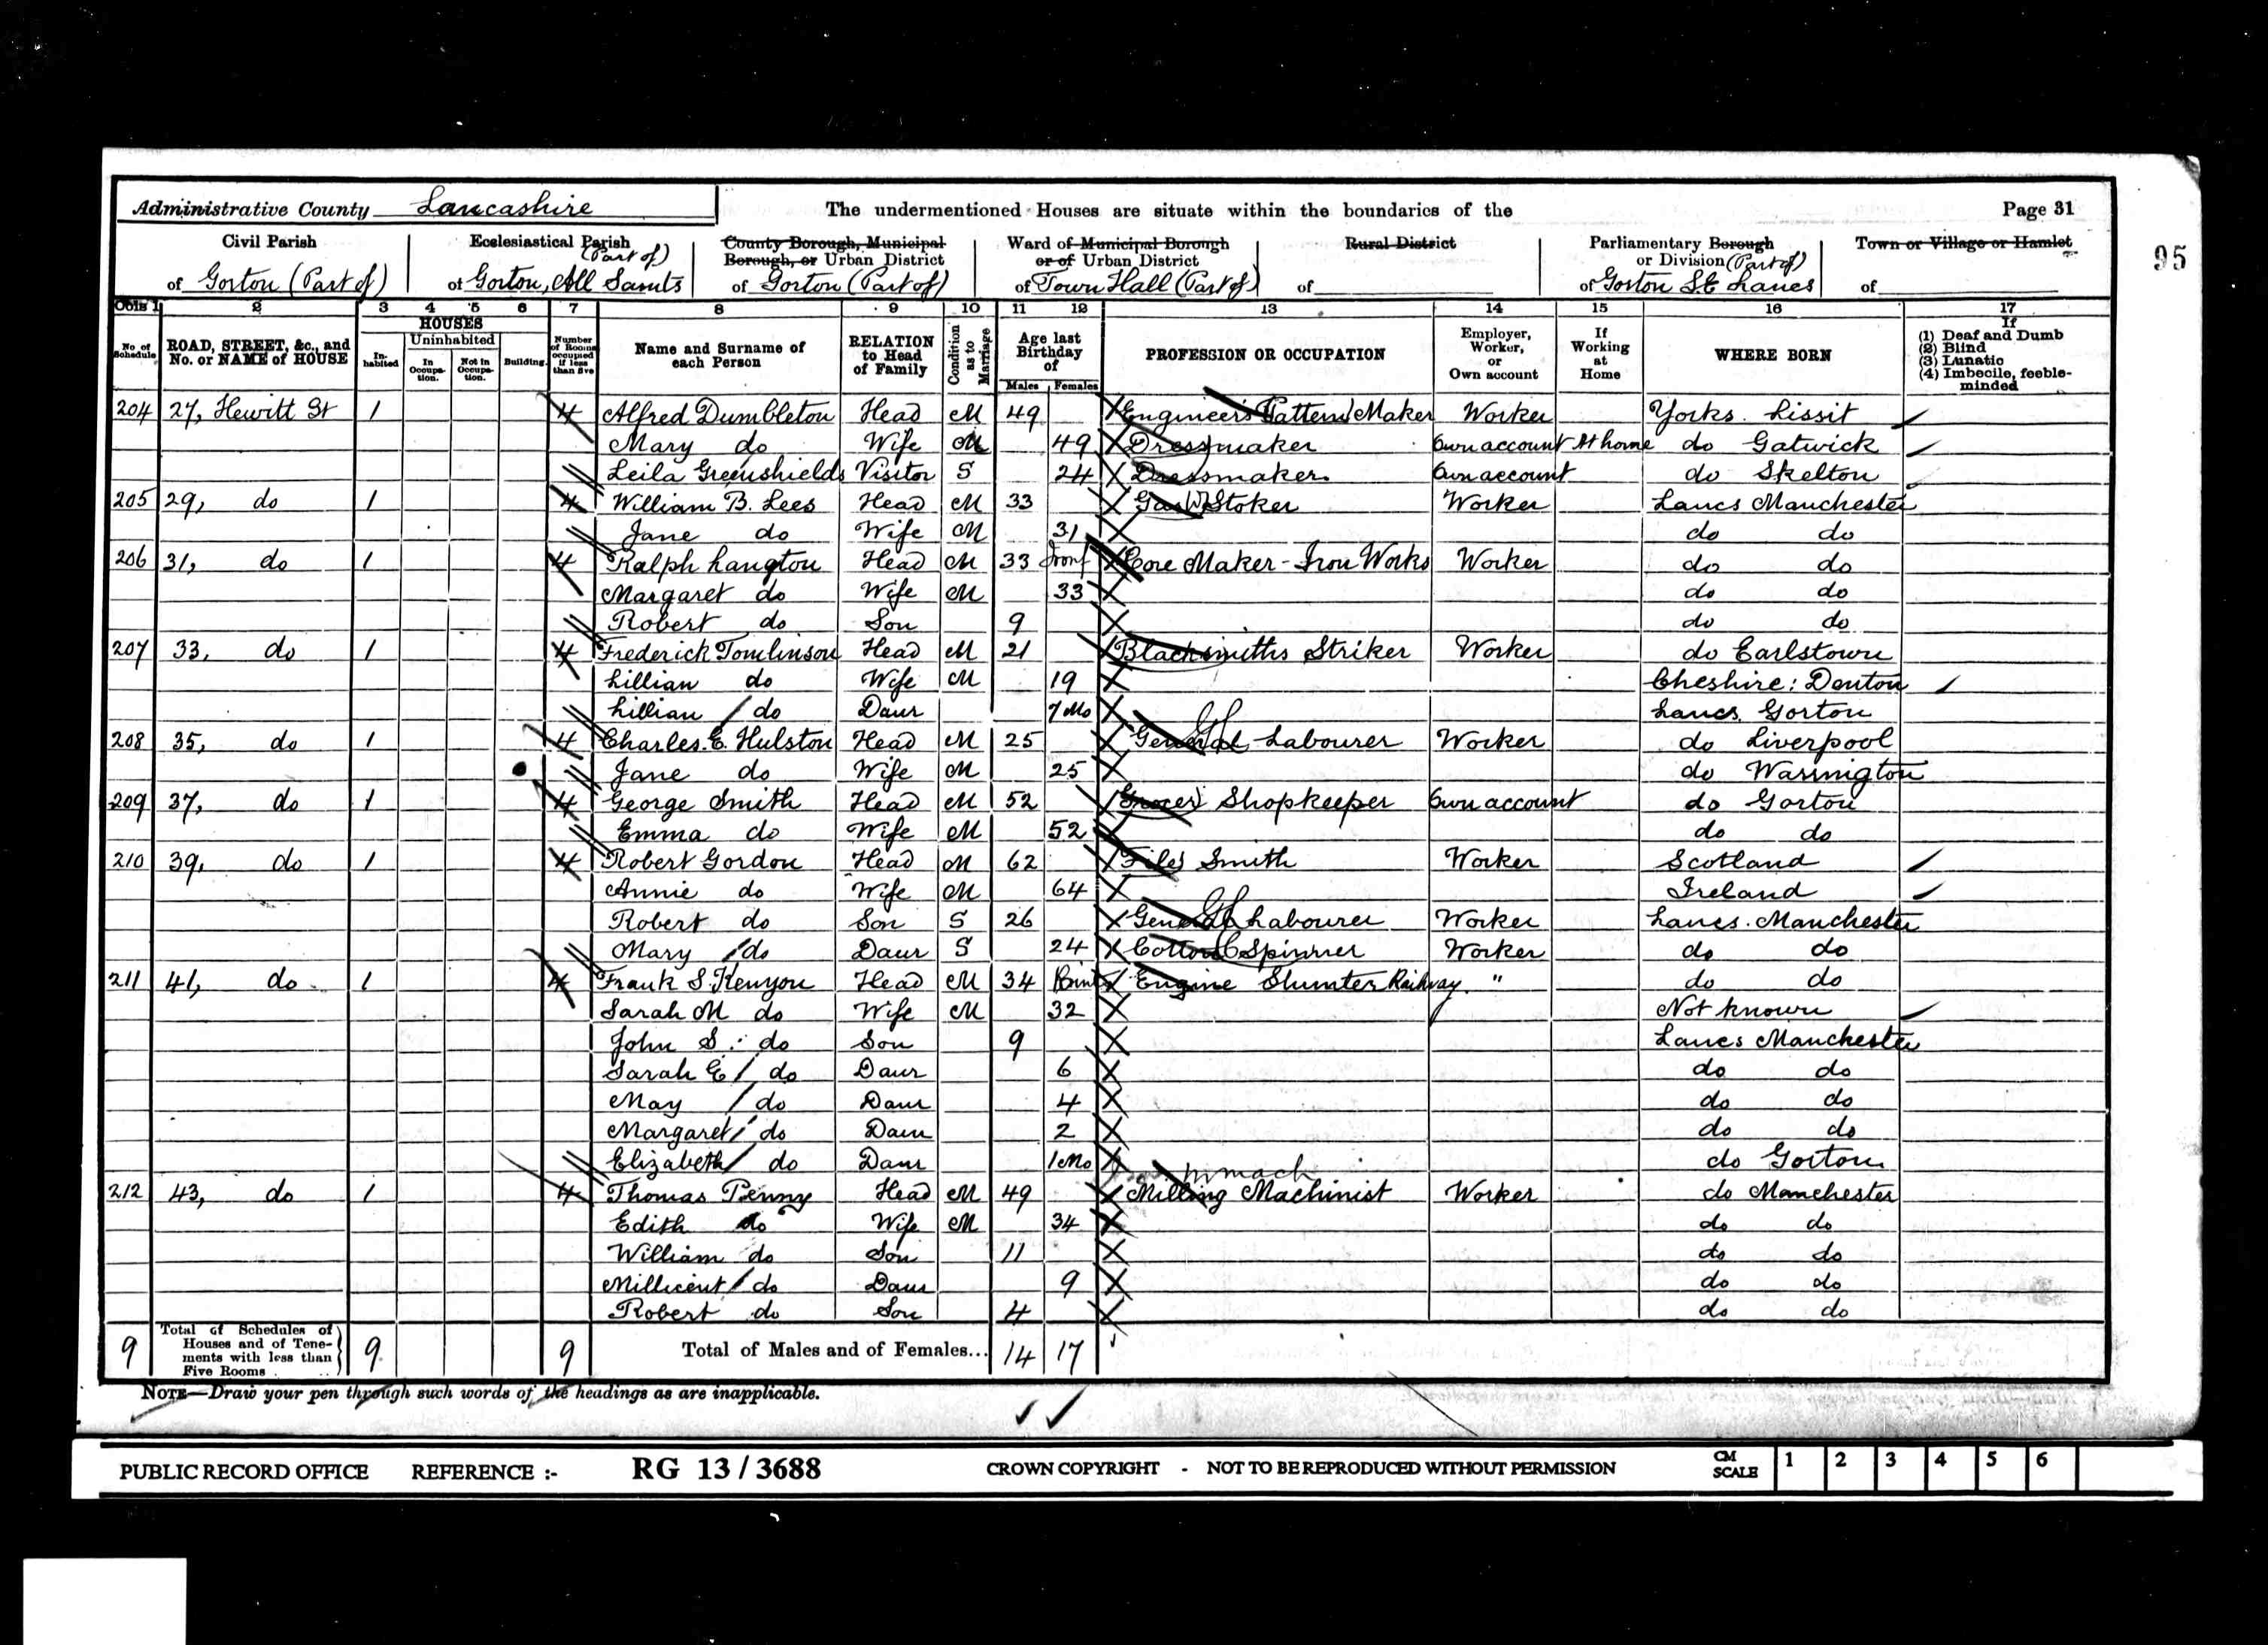 Administrative County Lancashire The undermentioned Houses are situate within the boundaries of the Page 31
95
Civil Parish of Gorton (Part of)
Ecclesiastical Parish (Part of) of Gorton, All Saints
County Borough, Municipal Borough, or Urban District of Gorton (Part of)
Ward of Municipal Borough or of Urban District of Town Hall (Part of)
Rural District of
Parliamentary Borough or Division (Part of) of Gorton S.E Lancs
Town or Village or Hamlet of
Cols 1 2 3 4 5 6 7 8 9 10 11 12 13 14 15 16 17
No. of Schedule
ROAD, STREET, &c., and No. or NAME of HOUSE
HOUSES
Inhabited
Uninhabited
In Occupation.
Not in Occupation.
Building
Number of Rooms occupied if less than five
Name and Surname of each Person
RELATION to Head of Family
Condition as to Marriage
Age last Birthday of
Males Females
PROFESSION OR OCCUPATION
Employer, Worker, or Own account
If Working at Home
WHERE BORN
If
(1) Deaf and Dumb
(2) Blind
(3) Lunatic
(4) Imbecile, feeble-minded
204 27, Hewitt St 1 4 Alfred Dumbleton Head M 49 Engineer's Pattern Maker Worker Yorks. Lissit
Mary do Wife M 49 Dressmaker Own account At home do Gatwick
Leila Greenshields Visitor S 24 Dressmaker Own account do Skelton
205 29, do 1 4 William B. Lees Head M 33 Gas Stoker Worker Lancs Manchester
Jane do Wife M 31 do do
206 31, do 1 4 Ralph Langton Head M 33 Core Maker - Iron Works Worker do do
Margaret do Wife M 33 do do
Robert do Son 9 do do
207 33, do 1 4 Frederick Tomlinson Head M 21 Blacksmiths Striker Worker do Earlstown
Lillian do Wife M 19 Cheshire: Denton
Lillian do Daur 7 Mo Lancs. Gorton
208 35, do 1 4 Charles. E. Hulston Head M 25 General Labourer Worker do Liverpool
Jane do Wife M 25 do Warrington
209 37, do 1 4 George Smith Head M 52 Grocer Shopkeeper Own account do Gorton
Emma do Wife M 52 do do
210 39, do 1 4 Robert Gordon Head M 62 File Smith Worker Scotland
Annie do Wife M 64 Ireland
Robert do Son S 26 General Labourer Worker Lancs. Manchester
Mary do Daur S 24 Cotton Spinner Worker do do
211 41, do 1 4 Frank S. Kenyon Head M 34 Engine Shunter Railway " do do
Sarah M do Wife M 32 Not known
John S. do Son 9 Lancs Manchester
Sarah E do Daur 6 do do
May do Daur 4 do do
Margaret do Daur 2 do do
Elizabeth do Daur 1 Mo do Gorton
212 43, do 1 4 Thomas Penny Head M 49 Milling Machinist Worker do Manchester
Edith do Wife M 34 do do
William do Son 11 do do
Millicent do Daur 9 do do
Robert do Son 4 do do
9 Total of Schedules of Houses and of Tenements with less than Five Rooms 9 9 Total of Males and of Females... 14 17
NOTE—Draw your pen through such words of the headings as are inapplicable.
PUBLIC RECORD OFFICE REFERENCE :- RG 13 / 3688 CROWN COPYRIGHT - NOT TO BE REPRODUCED WITHOUT PERMISSION CM SCALE 1 2 3 4 5 6